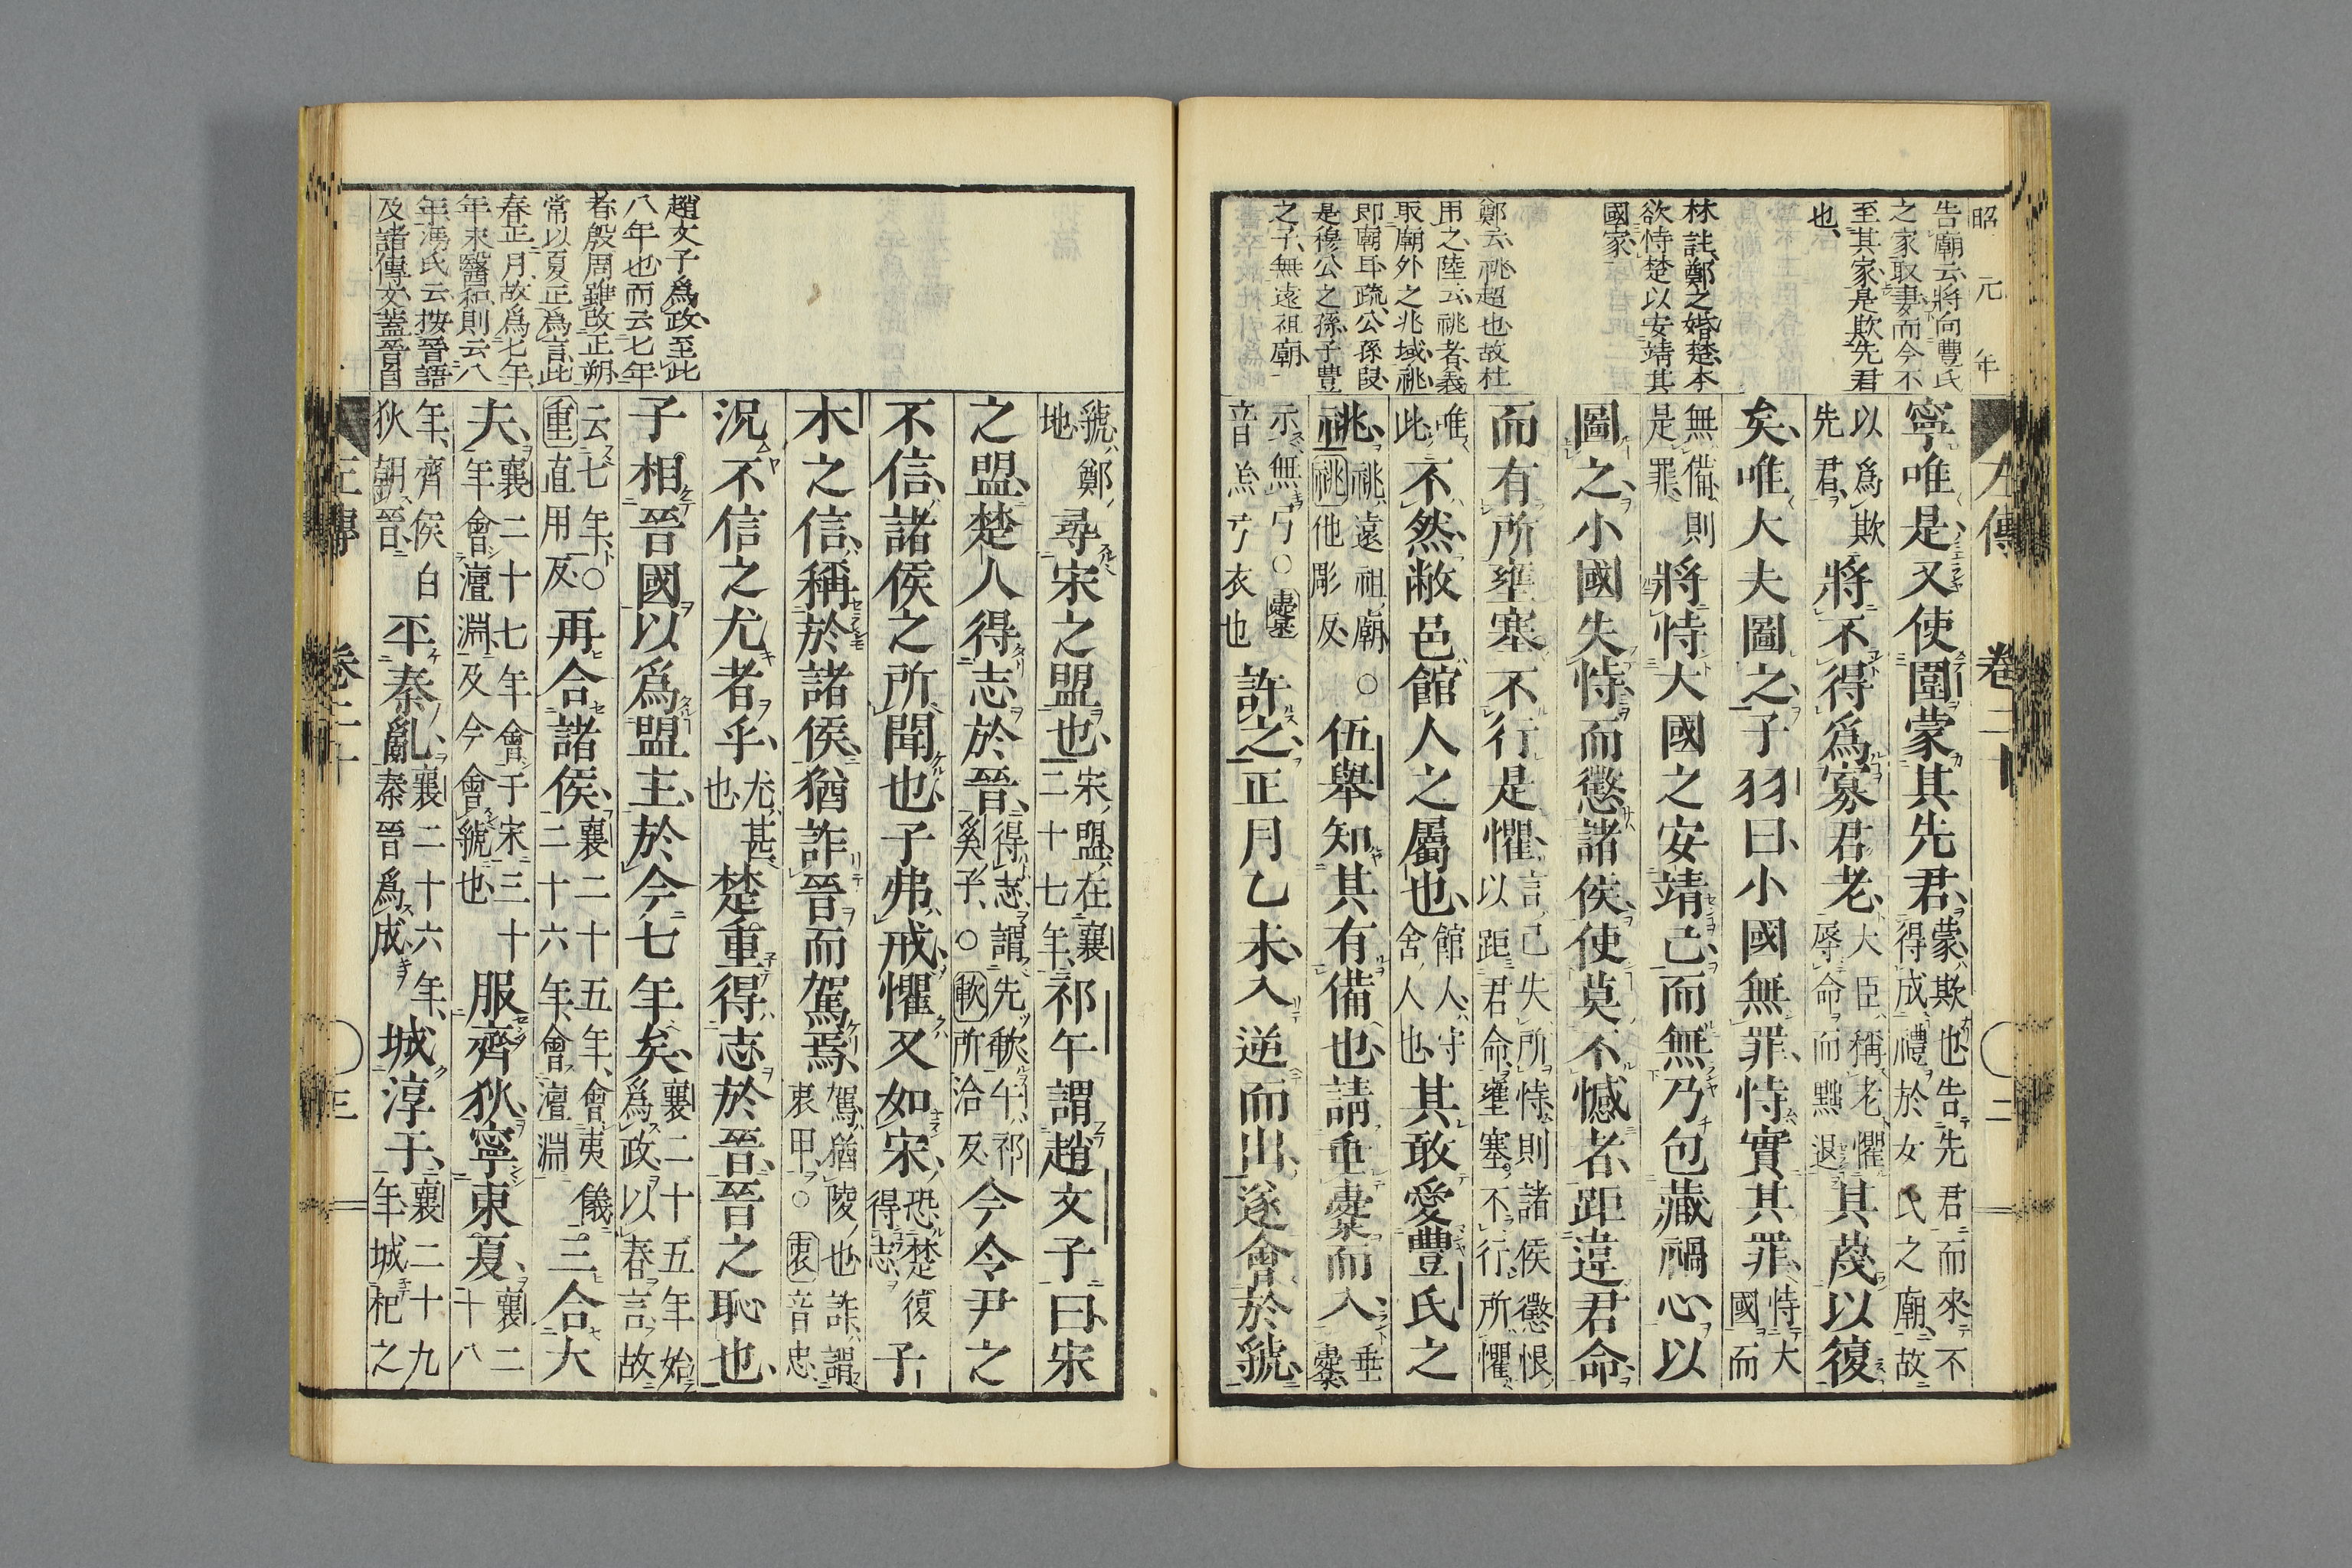 昭元年
告廟云將向豐氏
之家取妻而今不
至其家是欺先君
也
林註鄭之婚楚本
欲恃楚以安靖其
國家
鄭云祧超也故杜
用之陸云祧者義
取廟外之兆域祧
即廟耳疏公孫段
是穆公之孫子豐
之子無遠祖廟
左傳 卷二十 二
寧唯是又使圍蒙其先君蒙欺也告先君而來不得成禮於女氏之廟故
以爲欺先君將不得爲寡君老大臣稱老懼辱命而黜退其蔑以復
矣唯大夫圖之子羽曰小國無罪恃實其罪恃大國而
無備則是罪將恃大國之安靖己而無乃包藏禍心以
圖之小國失恃而懲諸侯使莫不憾者距違君命
而有所壅塞不行是懼言己失所恃則諸侯懲恨以距君命壅塞不行所懼
唯此不然敝邑館人之屬也館人守舍人也其敢愛豐氏之
祧祧遠祖廟祧他彫反○伍舉知其有備也請垂櫜而入垂櫜
示無弓○櫜音羔弓衣也許之正月乙未入逆而出遂會於虢
虢鄭地尋宋之盟也宋盟在襄二十七年祁午謂趙文子曰宋
之盟楚人得志於晉得志謂先歃午祁奚子○歃所洽反今令尹之
不信諸侯之所聞也子弗戒懼又如宋恐楚復得志子
木之信稱於諸侯猶詐晉而駕焉駕猶陵也詐謂衷甲○衷音忠
況不信之尤者乎尤甚也楚重得志於晉晉之恥也
子相晉國以爲盟主於今七年矣襄二十五年始爲政以春言故
云七年○重直用反再合諸侯襄二十五年會夷儀二十六年會澶淵三合大
夫襄二十七年會于宋三十年會澶淵及今會虢也服齊狄寧東夏襄二十八
年齊侯白狄朝晉平秦亂襄二十六年秦晉爲成城淳于襄二十九年城杞之
趙文子爲政至此
八年也而云七年
者殷周雖改正朔
常以夏正爲言此
春正月故爲七年
年末醫和則云八
年馮氏云按晉語
及諸傳文蓋晉自
左傳 卷二十 三